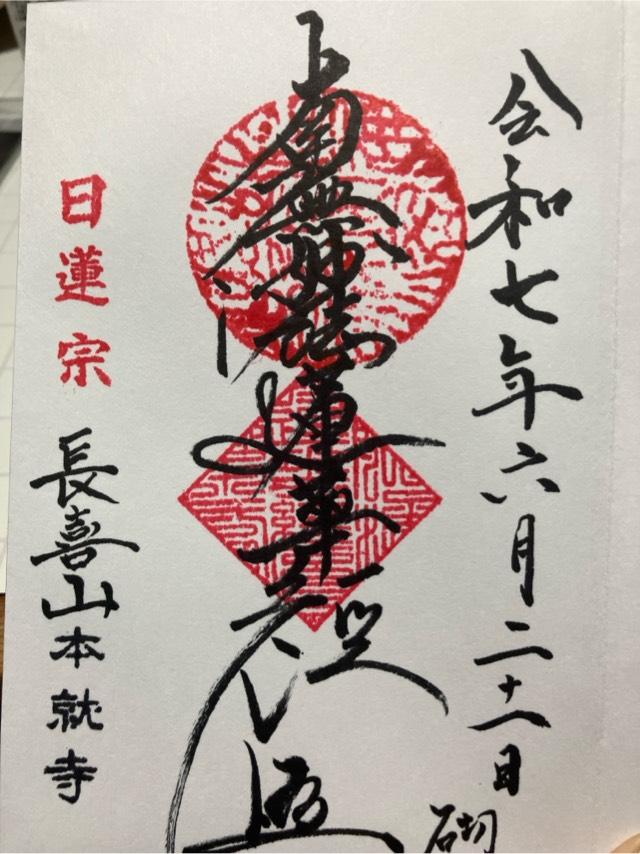 令和七年六月二十一日
砌
南無妙法蓮華経
日蓮宗
長喜山本就寺